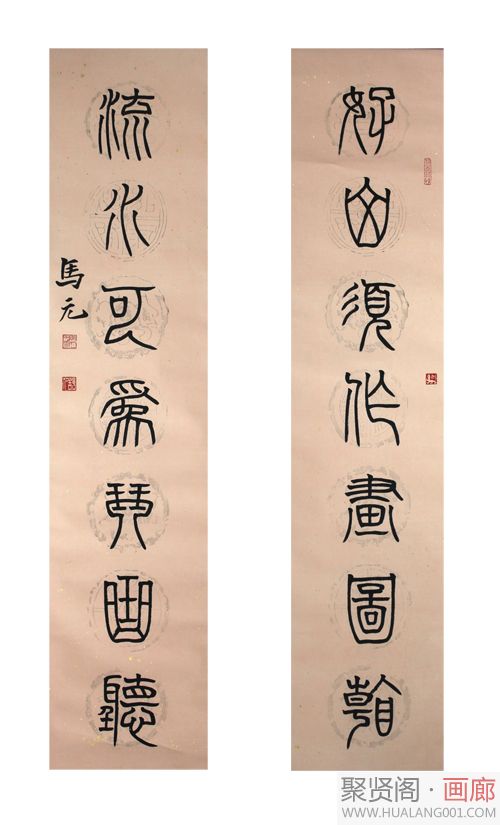 好山須作畫圖看
流水可爲琴曲聽
馬元
聚贤阁·画廊
WWW.HUALANG001.COM